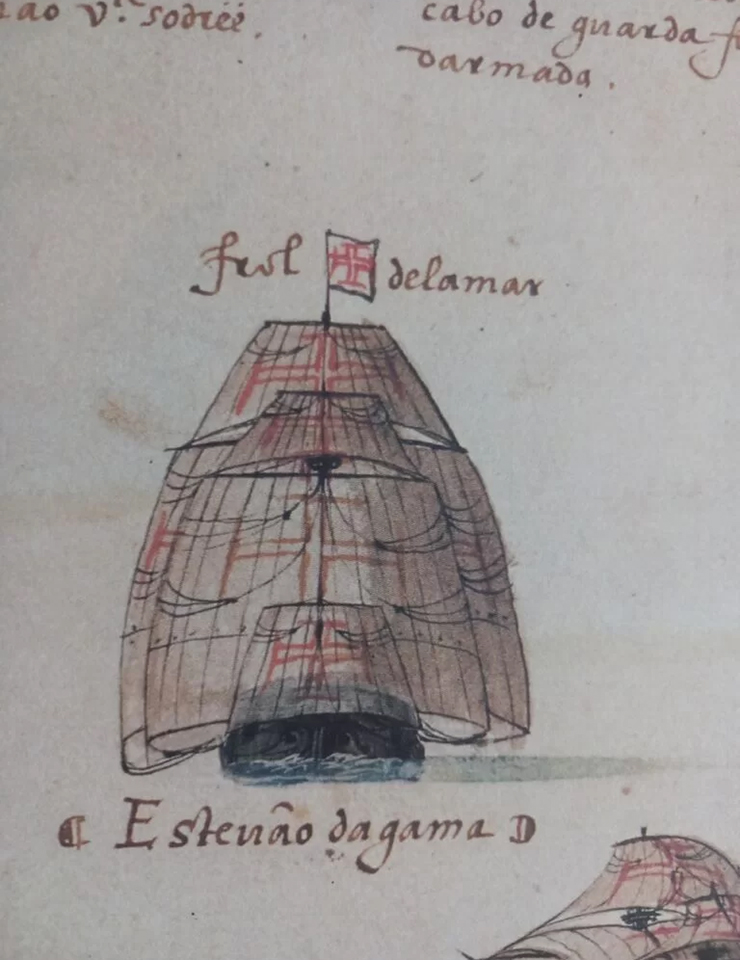 v.ᵗᵉ sodrēe.
cabo de guarda
darmada.
frol delamar
Esteuão dagama